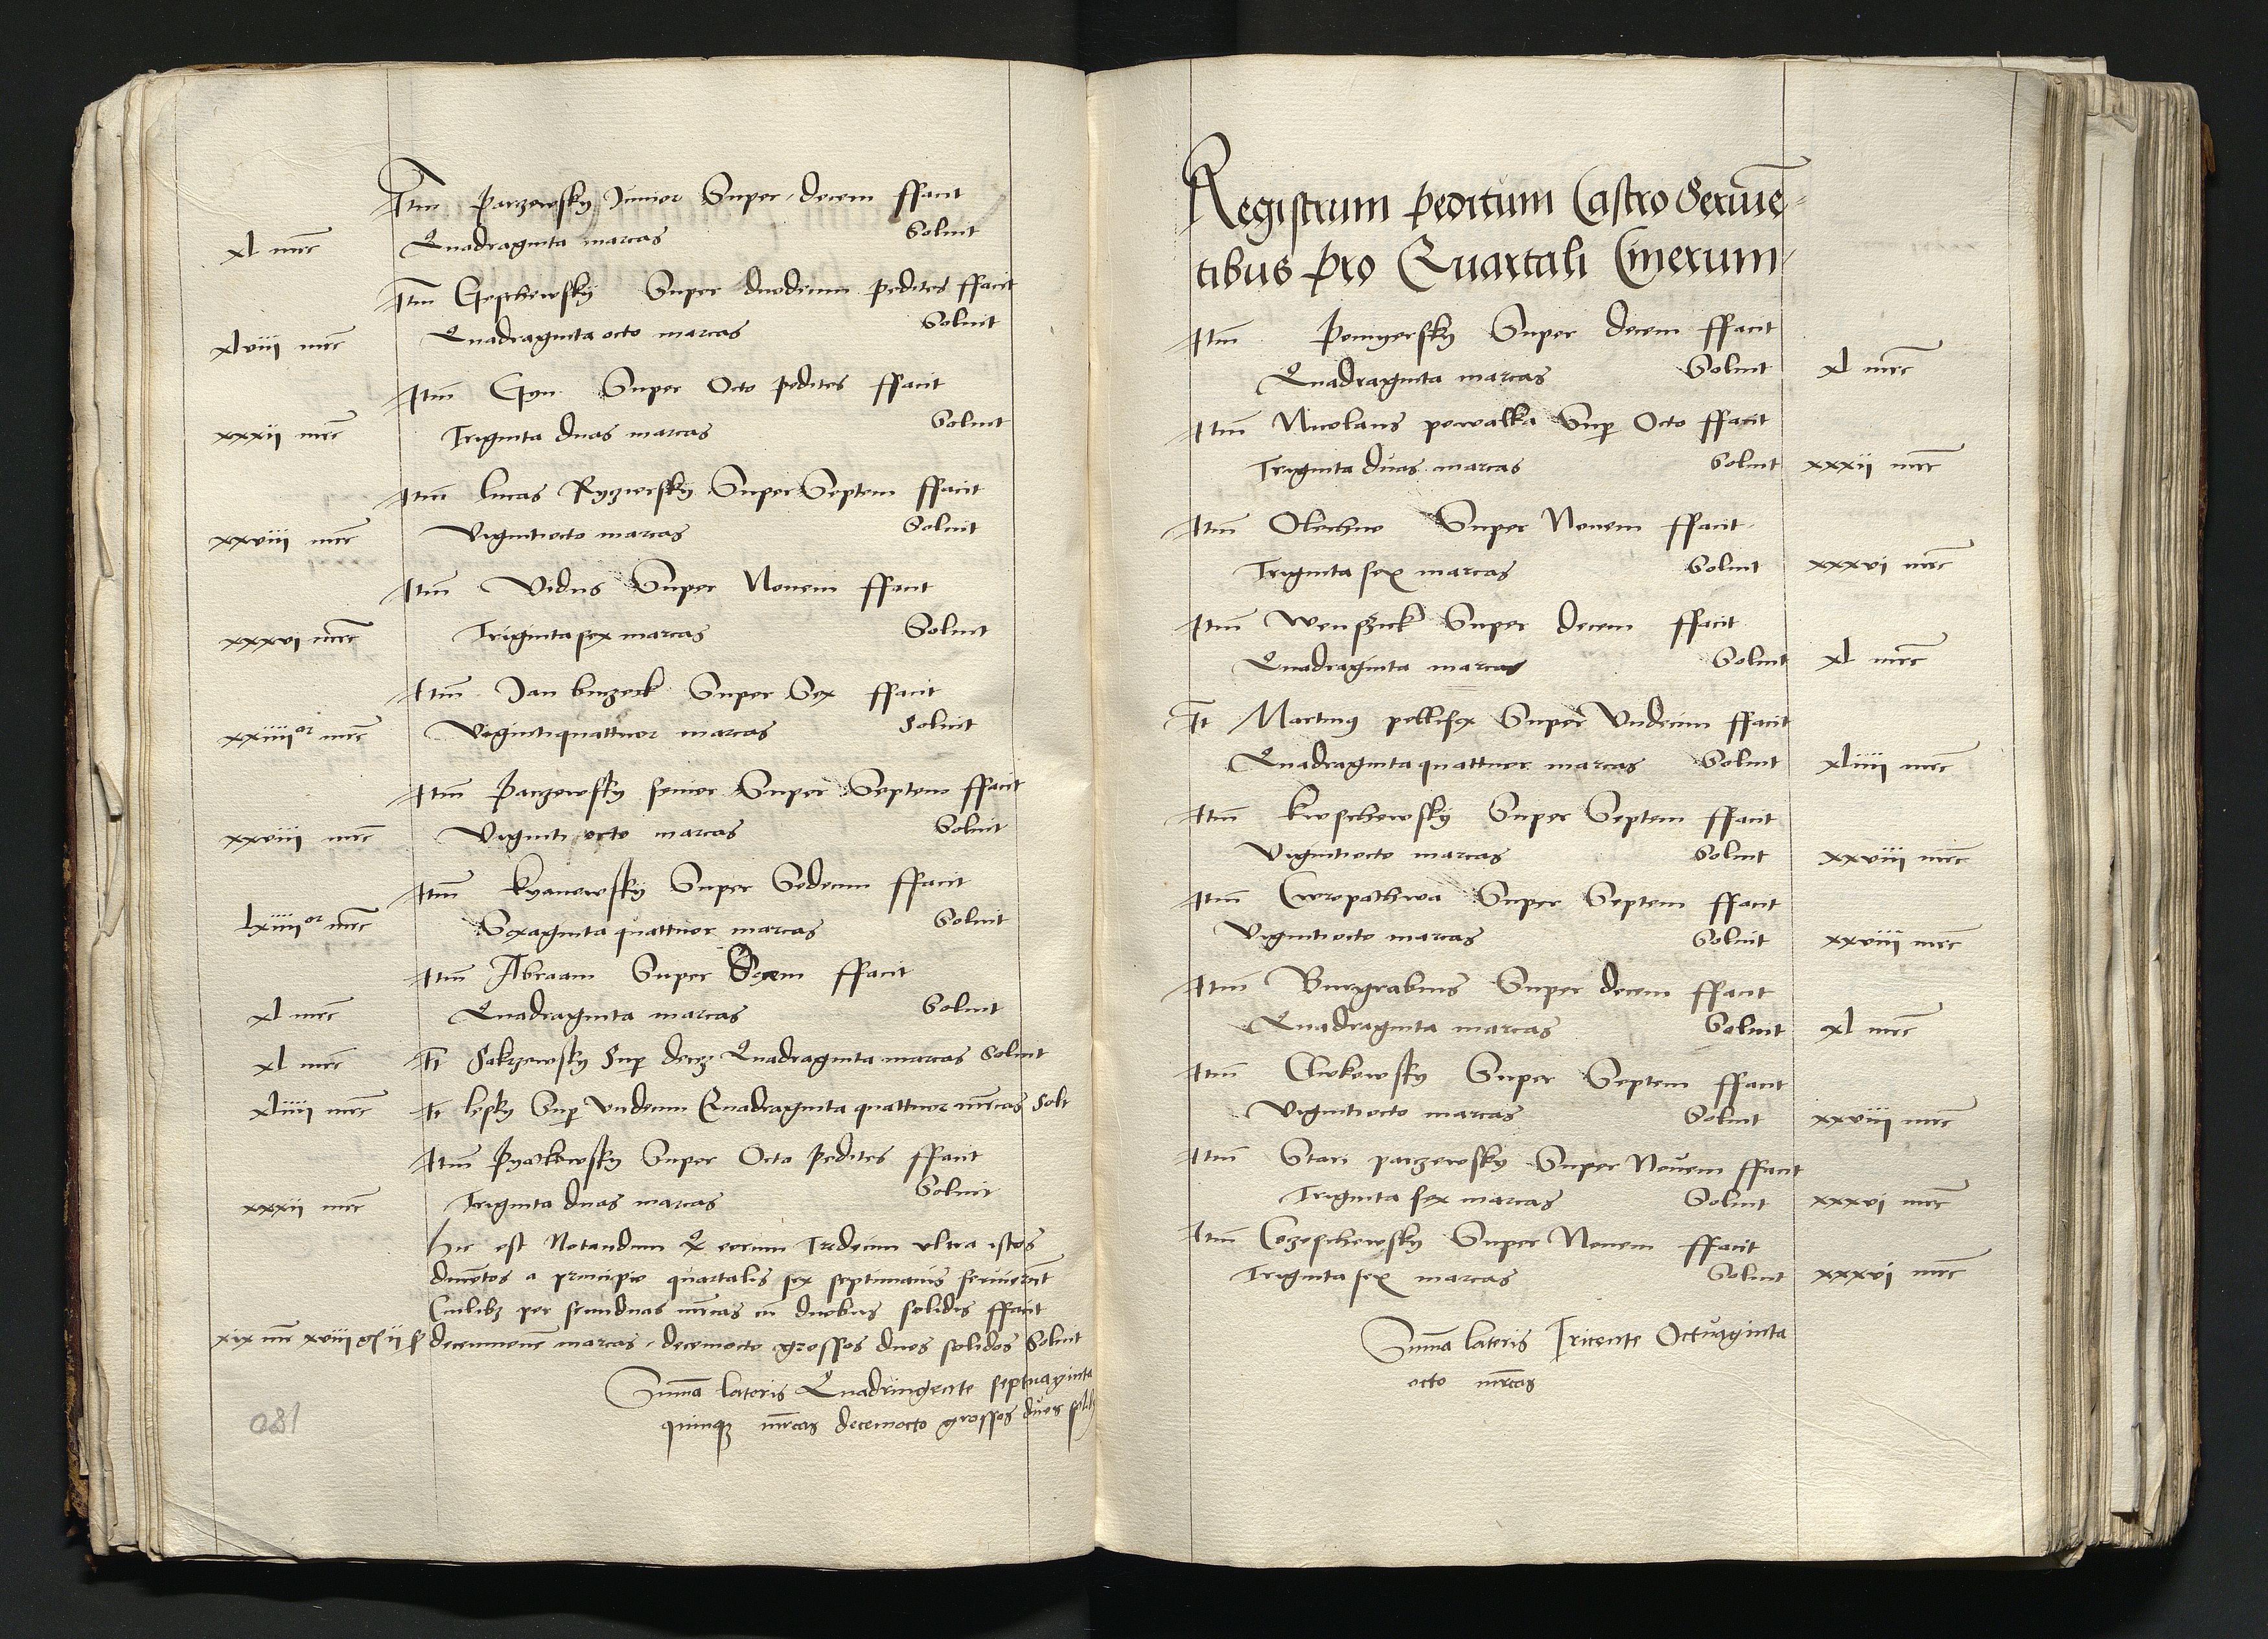 Itm̄ Parzewsky Junior Super decem ffacit
xl mrc̄ Quadraginta marcas Soluit
Itm̄ Goschewsky Super duodecim pedites ffacit
xlviii mrc̄ Quadraginta octo marcas Soluit
Itm̄ Super Octo pedites ffacit
xxxii mrc̄ Triginta duas marcas Soluit
Itm̄ lucas Super Septem ffacit
xxviii mrc̄ Viginti octo marcas Soluit
Itm̄ Vidus Super Nouem ffacit
xxxvi mrc̄ Triginta sex marcas Soluit
Itm̄ Jan buczeck Super Sex ffacit
xxiiii or mrc̄ Viginti quattuor marcas Soluit
Itm̄ Parzewsky senior Super Septem ffacit
xxviii mrc̄ Viginti octo marcas Soluit
Itm̄ kyanowsky Super Sedecim ffacit
lxiiii or mrc̄ Sexaginta quattuor marcas Soluit
Itm̄ Abraam Super Decem ffacit
xl mrc̄ Quadraginta marcas Soluit
xl mrc̄ It̄ Sakrzewsky Sup̄ decꝫ Quadraginta marcas Soluit
xliiii mrc̄ It̄ lypsky Sup̄ Vndecim Quadraginta quattuor mr̄cas Solt
Itm̄ Pyaskowsky Super Octo Pedites ffacit
xxxii mrc̄ Triginta duas marcas Soluit
Hic est Notandum eorum Tredecim vltra istos
ducētos a principio quartalis sex septimanis seruierūt
Cuilibꝫ per mr̄cas cū duobus solidis ffacit
xix mrc̄ xviii gr ii s decemnouem marcas decemocto grossos duos solidos Soluit
Suma lateris Quadringente septuaginta
quinqꝫ mr̄cas decemocto grossos duos solid
180
Registrum peditum Castro Seruiē=
tibus pro Quartali Cinerum
Itm̄ Super decem ffacit
Quadraginta marcas Soluit xl mrc̄
Itm̄ Nicolaus powalka Sup̄ Octo ffacit
Triginta duas marcas Soluit xxxii mrc̄
Itm̄ Olechno Super Nouem ffacit
Triginta sex marcas Soluit xxxvi mrc̄
Itm̄ Wenszick Super decem ffacit
Quadraginta marcas Soluit xl mrc̄
It̄ Martinꝰ pellifex Super Vndecim ffacit
Quadraginta quattuor marcas Soluit xliiii mrc̄
Itm̄ kroschewsky Super Septem ffacit
Viginti octo marcas Soluit xxviii mrc̄
Itm̄ Cwropathwa Super Septem ffacit
Viginti octo marcas Soluit xxviii mrc̄
Itm̄ Burgrabius Super decem ffacit
Quadraginta marcas Soluit xl mrc̄
Itm̄ Super Septem ffacit
Viginti octo marcas Soluit xxviii mrc̄
Itm̄ Stari parzewsky Super Nouem ffacit
Triginta sex marcas Soluit xxxvi mrc̄
Itm̄ Coczschewsky Super Nouem ffacit
Triginta sex marcas Soluit xxxvi mrc̄
Suma lateris Tricente Octuaginta
octo mr̄cas